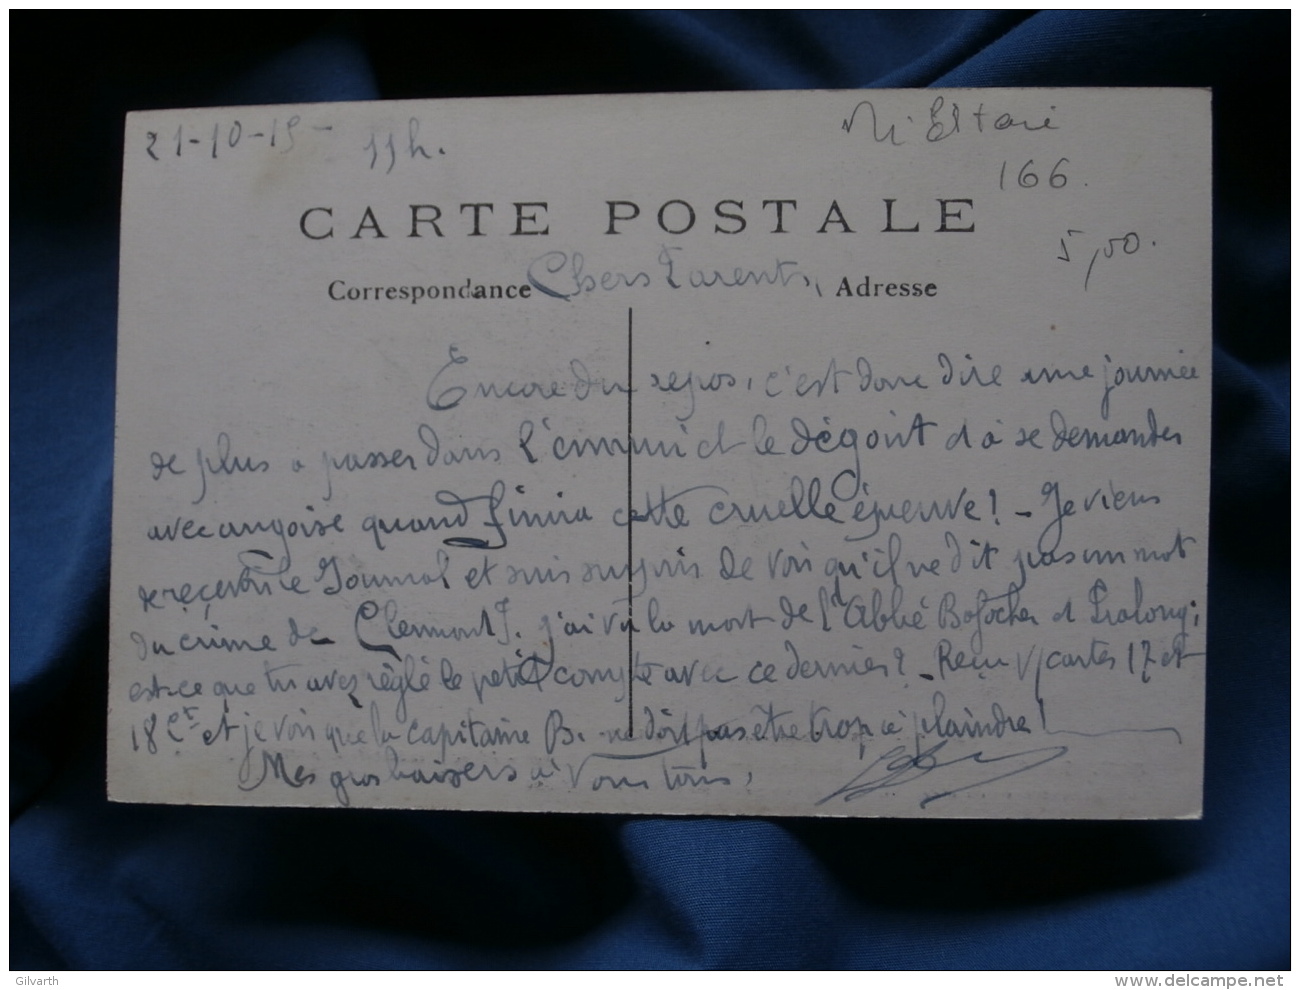 21-10-15 - 11h.
Militaire
166.
5,00.
CARTE POSTALE
Correspondance
Chers Parents,
Adresse
Encore du repos, c'est donc dire une journée
de plus à passer dans l'ennui et le dégoût et à se demander
avec angoise quand finira cette cruelle épreuve! - Je viens
de recevoir le Journal et suis surpris de voir qu'il ne dit pas un mot
du crime de Clermont F. j'ai vu la mort de l'Abbé et Pralong;
est-ce que tu avez réglé le petit compte avec ce dernier? - Reçu V/ cartes 17 et
18 Ct et je vois que la capitaine B. ne doit pas être trop à plaindre!
Mes gros baisers à Vous tous,
Gilvarth
www.delcampe.net